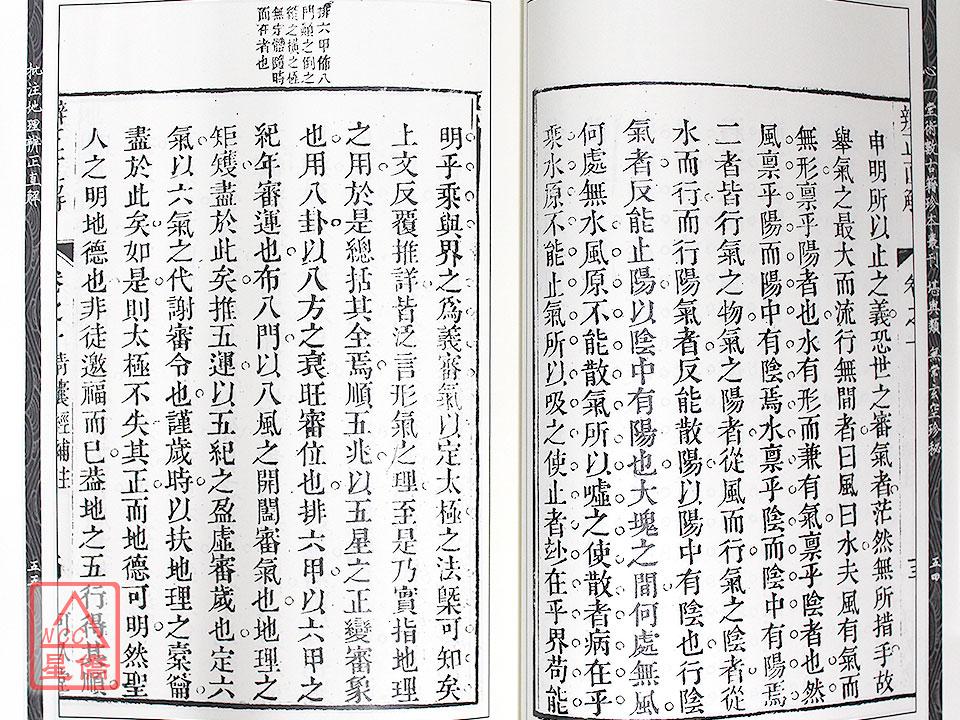 心一堂術數古籍珍本叢刊　堪輿類　無常玄空珍秘
五四
申明所以止之義恐世之審氣者茫然無所措手故
舉氣之最大而流行無間者曰風曰水夫風有氣而
無形稟乎陽者也水有形而兼有氣稟乎陰者也然
風稟乎陽而陽中有陰焉水稟乎陰而陰中有陽焉
二者皆行氣之物氣之陽者從風而行氣之陰者從
水而行而行陽氣者反能散陽以陽中有陰也行陰
氣者反能止陽以陰中有陽也大塊之間何處無風
何處無水風原不能散氣所以噓之使散者病在乎
乘水原不能止氣所以吸之使止者玅在乎界苟能
排六甲佈八
門顛之倒之
縱之橫之極
無定體隨時
而在者也
明乎乘與界之爲義審氣以定太極之法槩可知矣
上文反覆推詳皆泛言形氣之理至是乃實指地理
之用於是總括其全焉順五兆以五星之正變審象
也用八卦以八方之衰旺審位也排六甲以六甲之
紀年審運也布八門以八風之開闔審氣也地理之
矩矱盡於此矣推五運以五紀之盈虛審歲也定六
氣以六氣之代謝審令也謹歲時以扶地理之橐籥
盡於此矣如是則太極不失其正而地德可明然聖
人之明地德也非徒邀福而已葢地之五行得其順
批注地理辨正直解
WCC
星僑